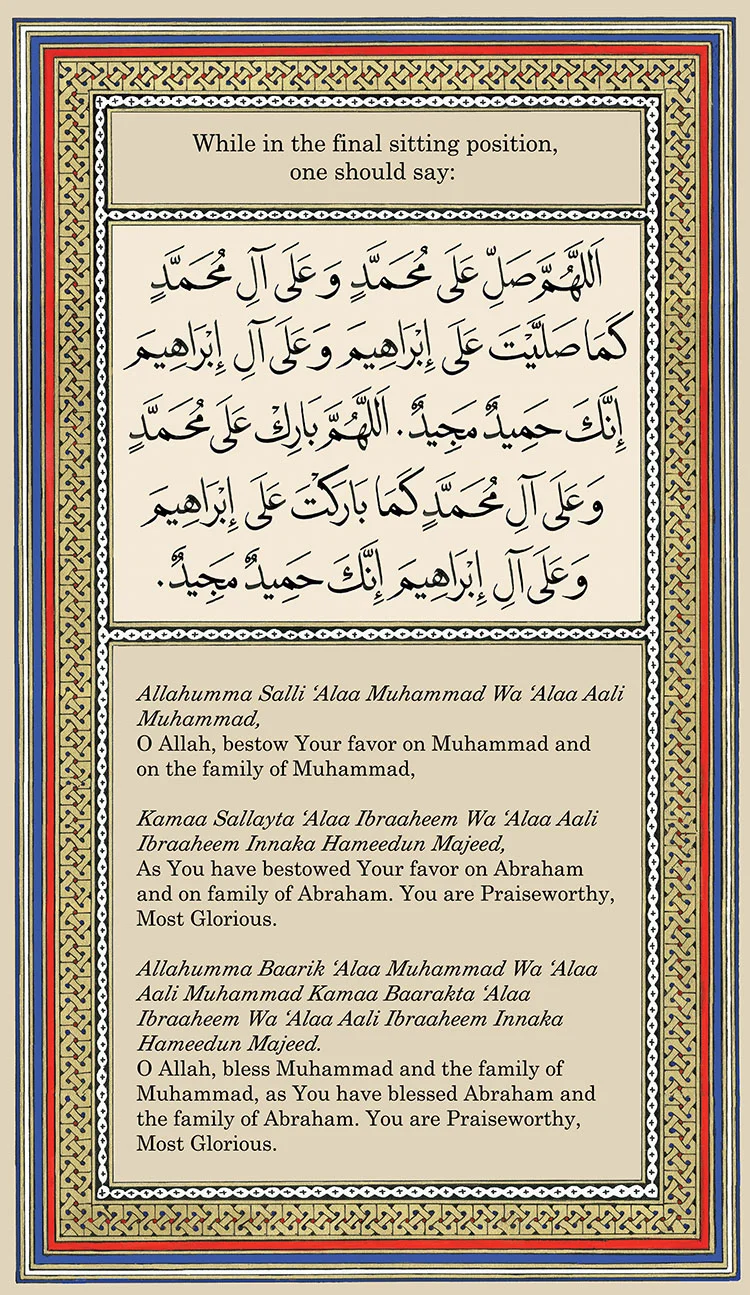 While in the final sitting position,
one should say:
اَللّٰهُمَّ صَلِّ عَلَى مُحَمَّدٍ وَ عَلَى آلِ مُحَمَّدٍ
كَمَا صَلَيَّتَ عَلَى إِبْرَاهِيمَ وَ عَلَى آلِ إِبْرَاهِيمَ
إِنَّكَ حَمِيدٌ مَجِيدٌ. اَللّٰهُمَّ بَارِكْ عَلَى مُحَمَّدٍ
وَ عَلَى آلِ مُحَمَّدٍ كَمَا بَارَكْتَ عَلَى إِبْرَاهِيمَ
وَ عَلَى آلِ إِبْرَاهِيمَ إِنَّكَ حَمِيدٌ مَجِيدٌ.
Allahumma Salli ‘Alaa Muhammad Wa ‘Alaa Aali
Muhammad,
O Allah, bestow Your favor on Muhammad and
on the family of Muhammad,
Kamaa Sallayta ‘Alaa Ibraaheem Wa ‘Alaa Aali
Ibraaheem Innaka Hameedun Majeed,
As You have bestowed Your favor on Abraham
and on family of Abraham. You are Praiseworthy,
Most Glorious.
Allahumma Baarik ‘Alaa Muhammad Wa ‘Alaa
Aali Muhammad Kamaa Baarakta ‘Alaa
Ibraaheem Wa ‘Alaa Aali Ibraaheem Innaka
Hameedun Majeed.
O Allah, bless Muhammad and the family of
Muhammad, as You have blessed Abraham and
the family of Abraham. You are Praiseworthy,
Most Glorious.